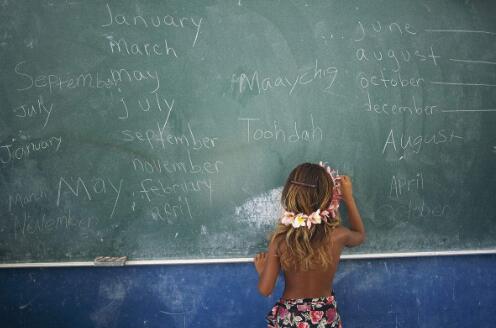 January
March
may
july
september
november
february
april
September
July
January
May
March
November
Maaychig
Toohdah
... june
august
october
december
August
April